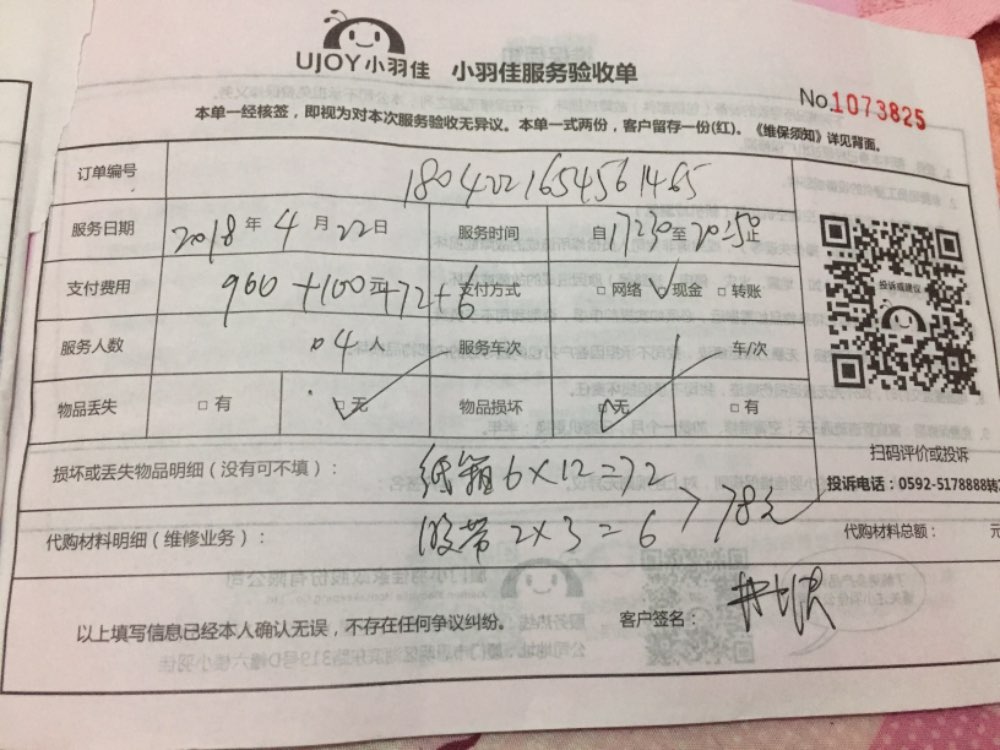 UJOY小羽佳 小羽佳服务验收单
No.1073825
本单一经核签，即视为对本次服务验收无异议。本单一式两份，客户留存一份(红)。《维保须知》详见背面。
订单编号 18042216545561465
服务日期 2018年4月22日 服务时间 自17:30至20:50止
支付费用 960+100+72+6 支付方式 □网络 ☑现金 □转账
服务人数 4人 服务车次 车/次
物品丢失 □有 ☑无 物品损坏 ☑无 □有
投诉或建议
扫码评价或投诉
投诉电话：0592-5178888转
损坏或丢失物品明细（没有可不填）： 纸箱6×12=72
代购材料明细（维修业务）： 胶带2×3=6 >78元
代购材料总额： 元
以上填写信息已经本人确认无误，不存在任何争议纠纷。 客户签名：